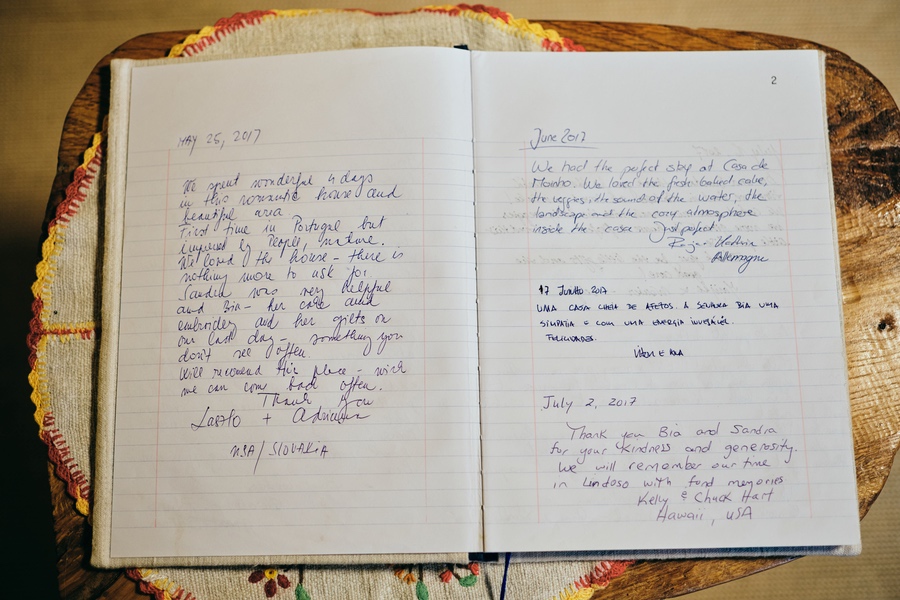 MAY 25, 2017
We spent wonderful 4 days
in this romantic house and
beautiful area
First time in Portugal but
impressed by People, nature.
We loved this house - there is
nothing more to ask for.
Sandra was very helpful
and Bia - her cake and
embroidery and her gifts on
our last day - something you
don't see often.
Will recomend this place - wish
we can come back often.
Thank you
Laszlo + Adriana
USA/SLOVAKIA
2
June 2017
We had the perfect stay at Casa do
Moinho. We loved the fresh baked cake,
the veggies, the sound of the water, the
landscape and the cozy atmosphere
inside the casa. Just perfect.
Allemagne
17 JUNHO 2017
UMA CASA CHEIA DE AFETOS. A SENHORA BIA UMA
SIMPATIA E COM UMA ENERGIA INVEJÁVEL.
FELICIDADES.
July 2, 2017
Thank you Bia and Sandra
for your kindness and generosity.
We will remember our time
in Lindoso with fond memories
Kelly & Chuck Hart
Hawaii, USA